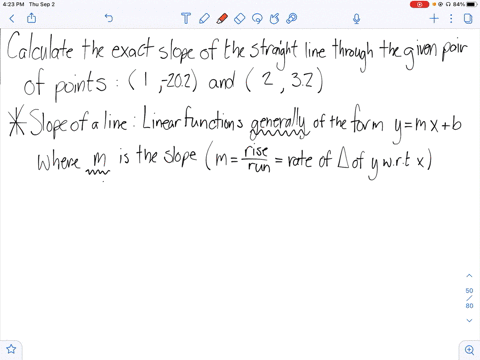 4:23 PM Thu Sep 2
84%
Calculate the exact slope of the straight line through the given pair
of points : (1, -20.2) and (2, 3.2)
* Slope of a line : Linear functions generally of the form y=mx+b
where m is the slope (m = rise/run = rate of Δ of y w.r.t x)
50
/
80